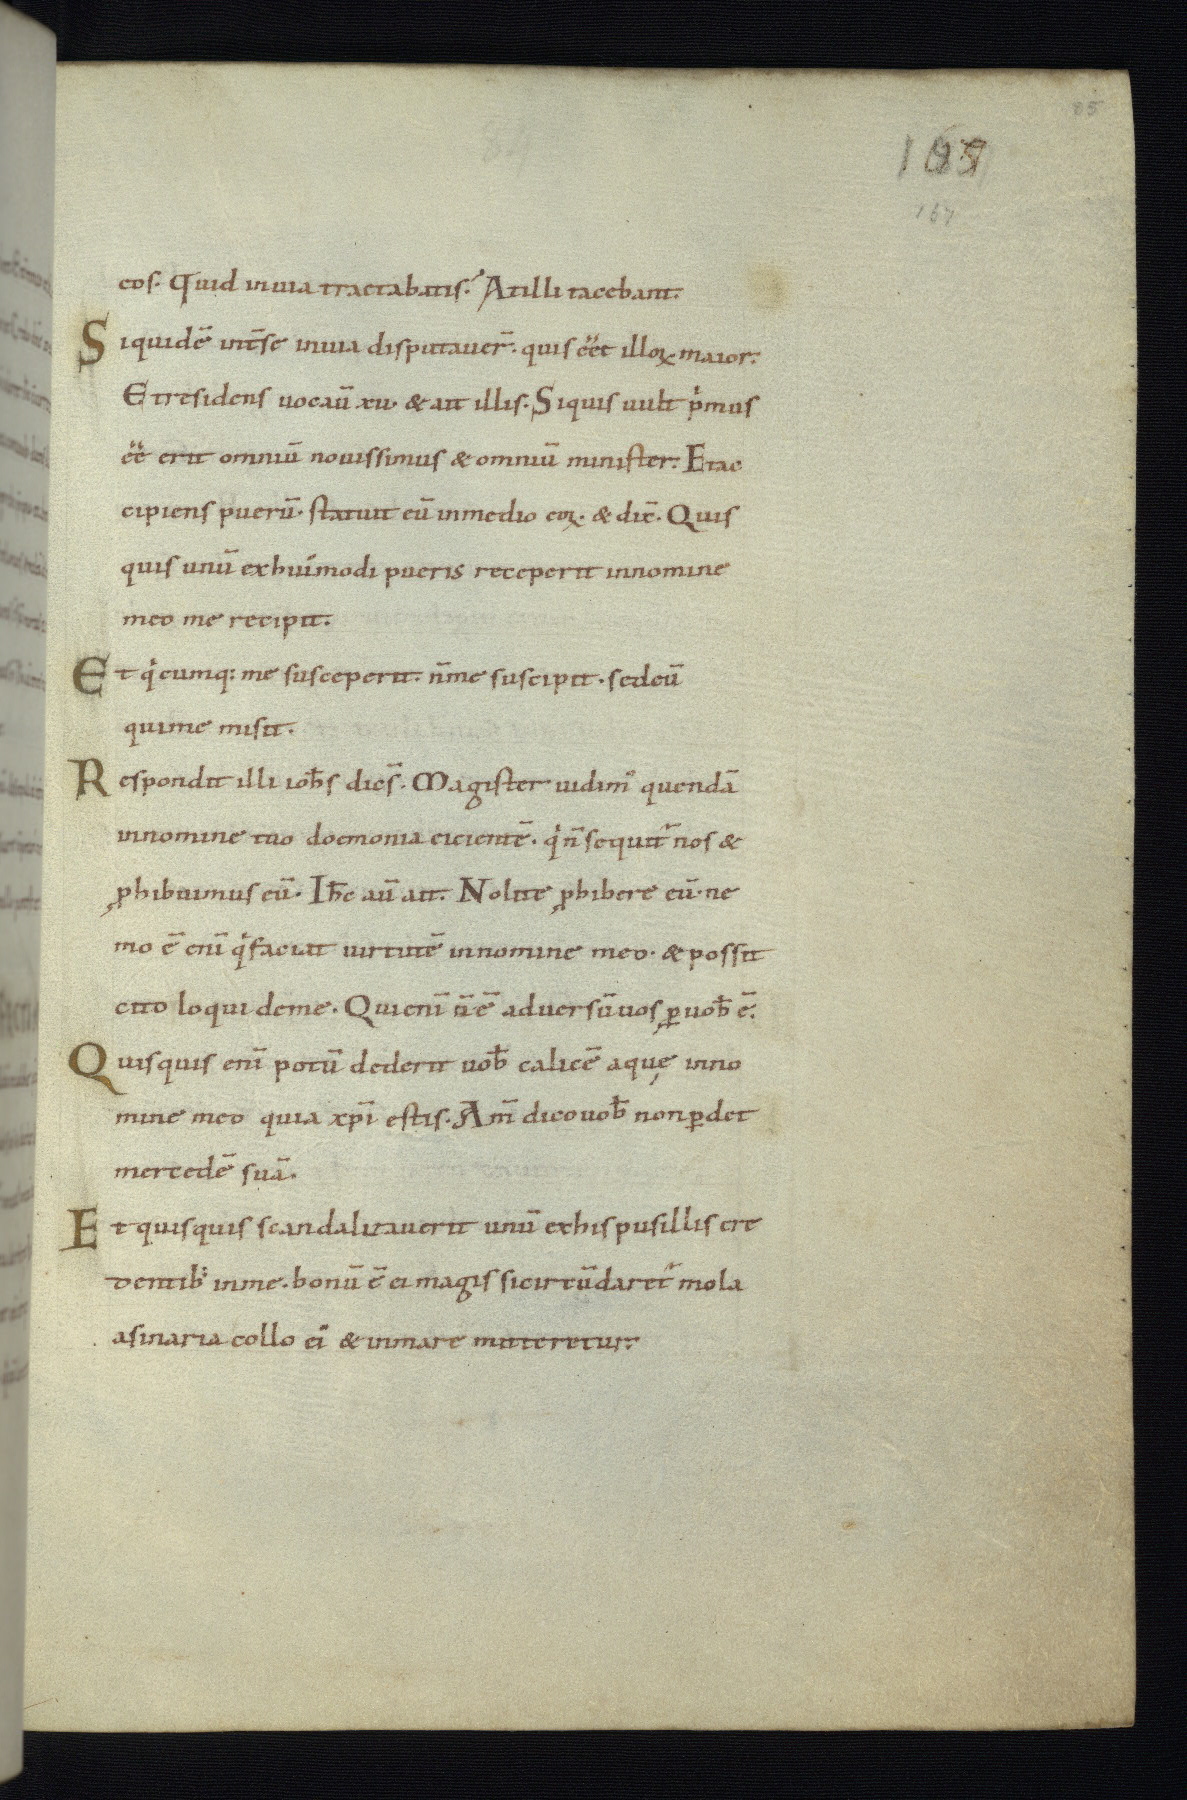 85
167
eos. Quid in uia tractabatis? At illi tacebant.
Siquidē int̄ se in uia disputauer̄. quis eēt illoꝝ maior.
Et residens uocau̅ xii. & ait illis. Siquis uult pͥmus
eē erit omniū nouissimus & omniū minister. Et ac
cipiens puerū. statuit eū in medio eoꝝ. & dic̄. Quis
quis unū ex hui̅modi pueris receperit in nomine
meo me recipit.
Et qͥcumq: me susceperit. n̄ me suscipit. sed eū
qui me misit.
Respondit illi ioħs dic̄s. Magister uidimꝰ quendā
in nomine tuo doemonia eicientē. qͥ n̄ sequit᷑ nos &
ꝓhibuimus eū. Ih̅c au̅ ait. Nolite ꝓhibere eū. ne
mo ē eni̅ qͥ faciat uirtutē in nomine meo. & possit
cito loqui de me. Qui eni̅ n̅ ē aduersū uos ꝑ uob̅ ē.
Quisquis eni̅ potū dederit uob̅ calicē aquę in no
mine meo quia xp̅i estis. Am̅ dico uob̅ non ꝑdet
mercedē suā.
Et quisquis scandalizauerit unū ex his pusillis cre
dentib; in me. bonū ē ei magis si circūdaret᷑ mola
asinaria collo ei̅ & in mare mitteretur.